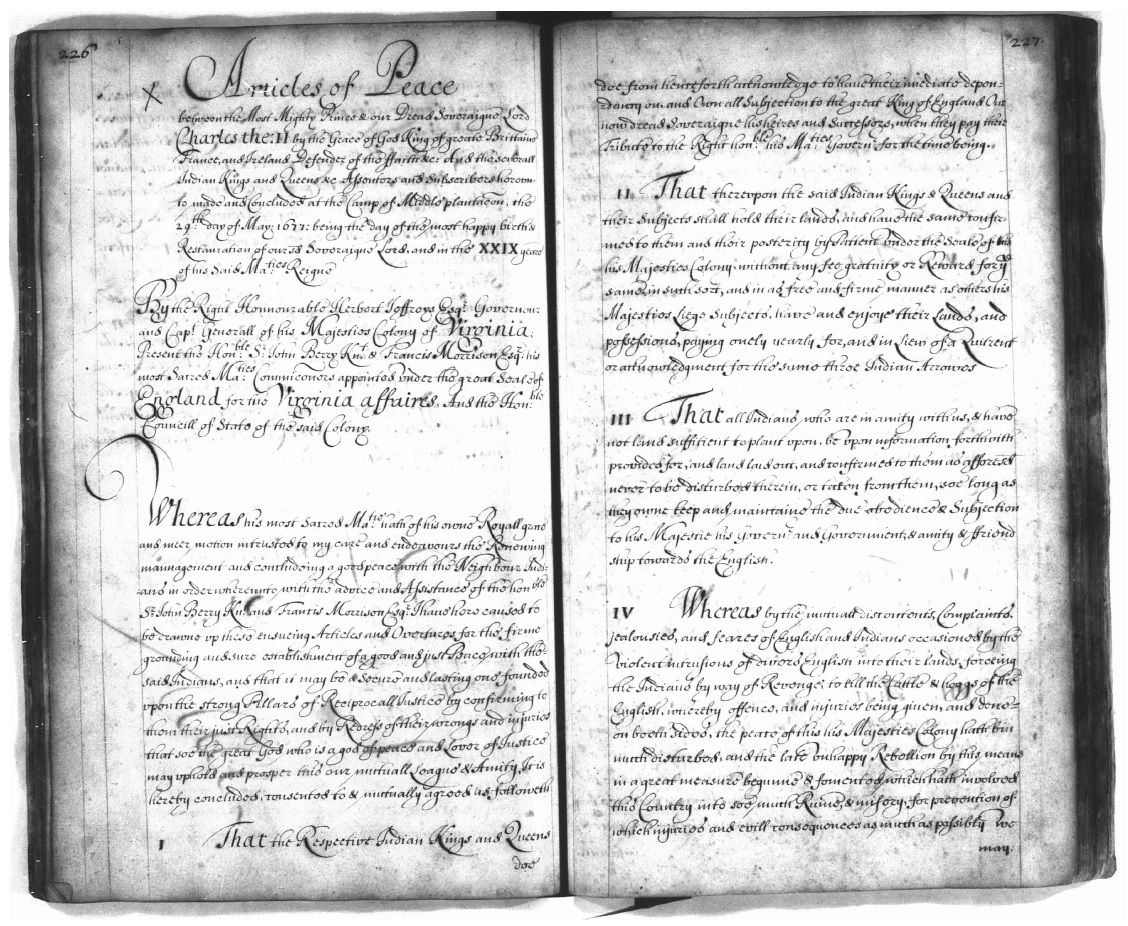 226
Articles of Peace
between the Most Mighty Prince & our Dread Soveraigne Lord
Charles the II by the Grace of God King of greate Brittaine
France, and Ireland Defender of the ffaith &c: And the severall
Indian Kings and Queens &c Assentors and Subscribers hereunto
made and Concluded at the Camp of Middle plantacon, the
29th day of May: 1677: being the day of the most happy birth &
Restauration of our sd Soveraigne Lord, and in the XXIX yeare
of his Said Maties Reigne
By the Right Honourable Herbert Jeffreys Esqr Governour
and Capt Generall of his Majesties Colony of Virginia;
Present the Honble Sr John Berry Knt & Francis Morrison Esqr his
most Sacred Maties Commiconers appointed under the great Seale of
England for the Virginia affaires, And the Honble
Councill of State of the said Colony.
Whereas his most Sacred Matie hath of his owne Royall grace
and meer motion intrusted to my care and endeavours the Renewing
management and concludeing a good peace with the Neighbour Indi-
ans in order whereunto, with the advice and Assistance of the honble
Sr John Berry Knt and Francis Morrison Esqr I have here caused to
be drawne up these ensueing Articles and Overtures for the firme
grounding and sure establishment of a good and just Peace with the
said Indians, and that it may be a Secure and lasting one founded
upon the strong Pillars of Reciprocall Justice by confirming to
them their just Rights, and by Redress of their wrongs and injuries
that soe the great God who is a god of peace and Lover of Justice
may uphold and prosper this our mutuall league & Amity, It is
hereby concluded, consented to & mutually agreed as followeth
I That the Respective Indian Kings and Queens
doe
227.
doe from henceforth acknowledge to have their imediate depen-
dancy on, and Own all Subjection to the great King of England Our
now dread Soveraigne his heires and Successors, when they pay their
Tribute to the Right honble his Maties Governr for the time being.
II That thereupon the said Indian Kings & Queens and
their Subjects shall hold their lands, and have the same confir-
med to them and their posterity by Patient under the Seale of this
his Majesties Colony, without any fee gratuity or Reward for ye
same, in such sort, and in as free and firme manner as others his
Majesties Liege Subjects, have and enjoye their Lands, and
possessions, paying onely yearly for, and in liew of a Quitrent
or acknowledgment for the same three Indian Arrowes
III That all Indians who are in amity with us, & have
not land suffitient to plant upon, be upon information forthwith
provided for, and land laid out, and confirmed to them as afforesd
never to be disturbed therein, or taken from them, soe long as
they owne keep and maintaine the due obedience & Subjection
to his Majestie his Governr and Government; & amity & ffriend
ship towards the English.
IV Whereas by the mutuall discontents, Complaints,
jealousies, and feares of English and Indians occasioned by the
Violent intrusions of divers English into their lands, forceing
the Indians by way of Revenge, to kill the Cattle & hoggs of the
English, whereby offence, and injuries being given, and done
on boeth sides, the peace of this his Majesties Colony hath bin
much disturbed, and the late unhappy Rebellion by this means
in a great measure begunne & fomented, which hath involved
this Country into soe much Ruine, & misery, for prevention of
which injuries and evill consequences as much as possibly we
may: